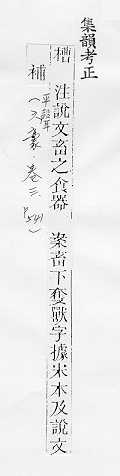 集韻考正
槽 注說文畜之食器 案畜下奪獸字據宋本及說文
補
平聲
(六豪·卷三 P541)